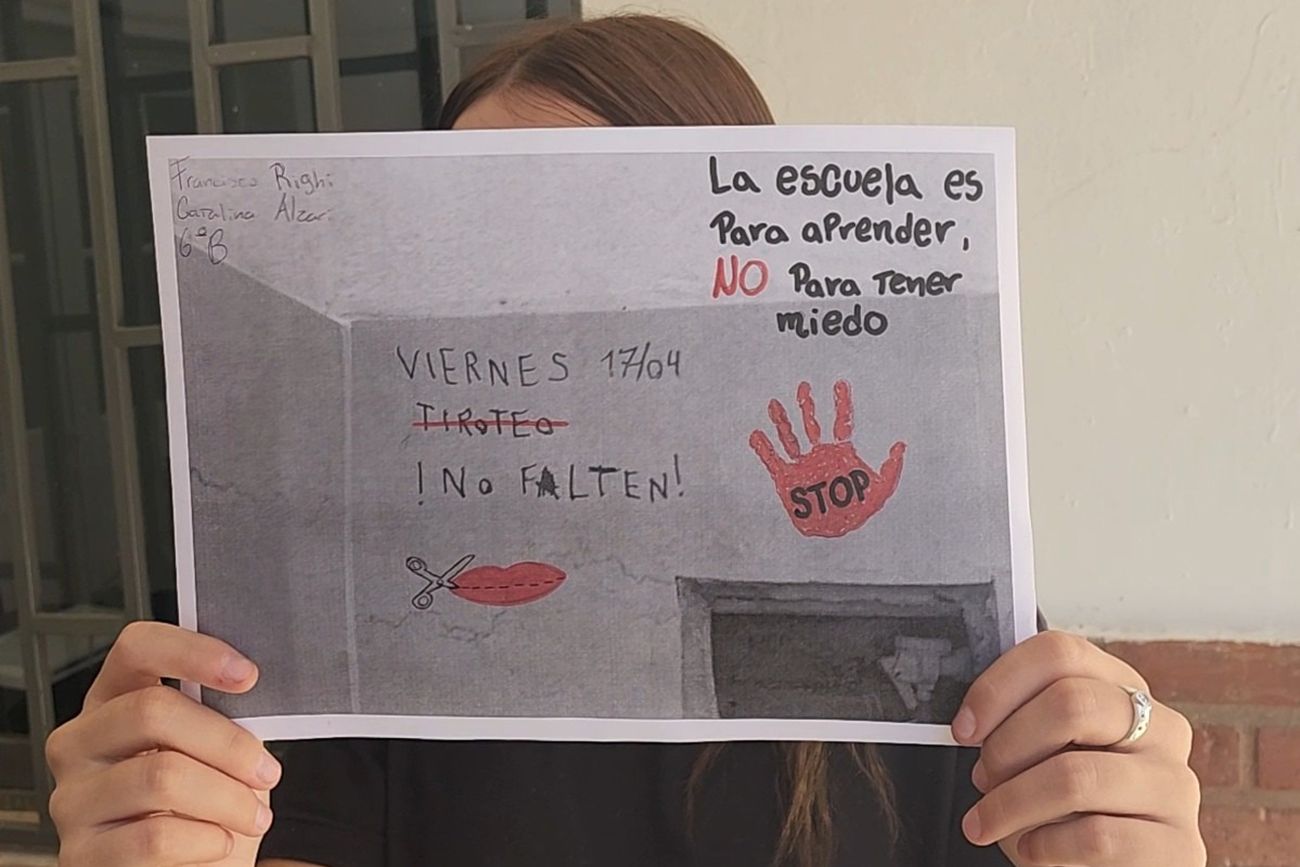 Francisco Righi
Catalina Alzari
6°B
La escuela es
Para aprender,
NO Para Tener
miedo
VIERNES 17/04
TIROTEO
!NO FALTEN!
STOP